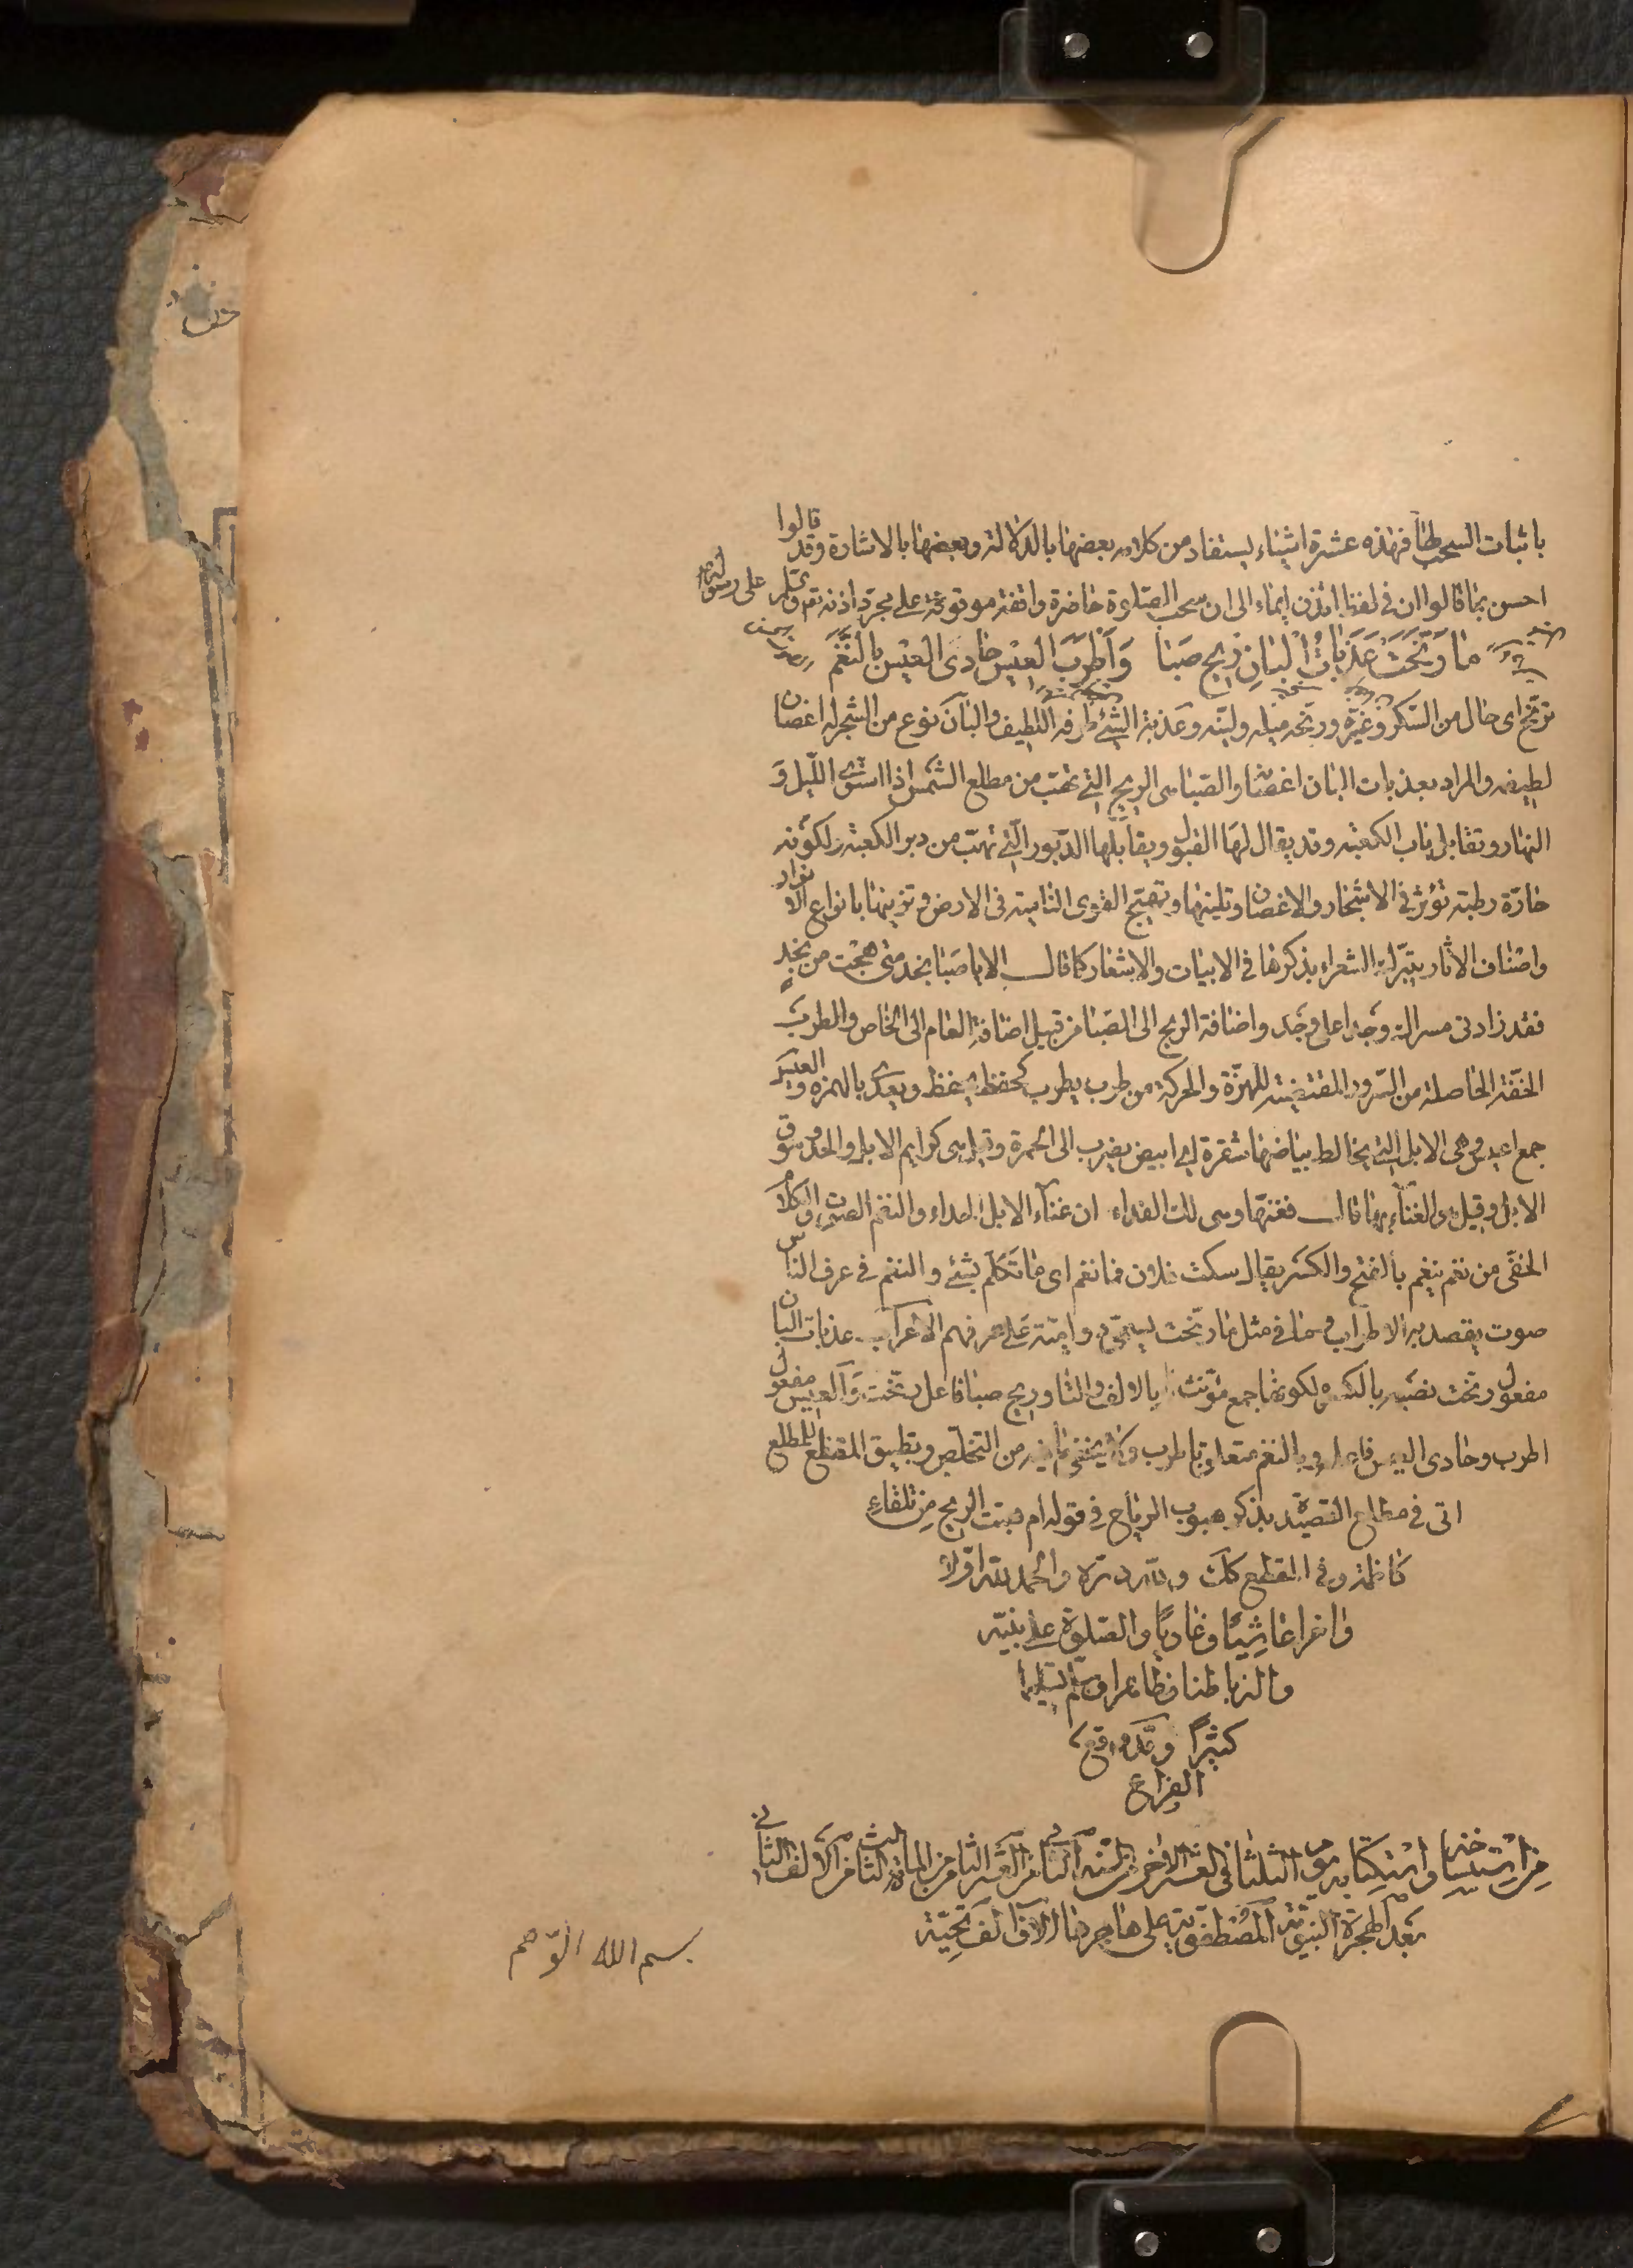 باثبات السحب لها فهذه عشرة اشياء يستفاد من كلامه بعضها بالدلالة وبعضها بالاشارة وقد قالوا
احسن مما قالوا ان في لفظ ائذن ايماء الى ان سحب الصلوة حاضرة واقفة موقوفة على مجرد اذنه تعم وتمطر على رسوله
ما رَنَّحَتْ عَذَبَاتِ الْبَانِ رِيحُ صَبَا وَاَطْرَبَ الْعِيْسَ حَادِى الْعِيْسِ بِالنَّغَمِ
ترنح اى مال من السكر وغيره ورنحه ميله ولينه وعذبة الشئ طرفه اللطيف والبان نوع من الشجر له اغصان
لطيفه والمراد بعذبات البان اغصانها والصبا هى الريح التى تهب من مطلع الشمس اذا استوى الليل و
النهار وتقابل باب الكعبة وقد يقال لها القبول ويقابلها الدبور التى تهب من دبر الكعبة ولكونه
حارة رطبة تؤثر في الاشجار والاغصان وتلينها وتهيج القوى النامية فى الارض وتزينها بانواع الانوار
واصناف الاثار يتبرك الشعراء بذكرها فى الابيات والاشعار كما قال الا يا صبا نجد متى هجت من نجد
فقد زادنى مسراك وجدا على وجد واضافة الريح الى الصبا من قبيل اضافة العام الى الخاص والطرب
الخفة الحاصلة من السرور المقتضية للهزة والحركة من طرب يطرب كحفظ يحفظ ويعدى بالهمزه والعيس
جمع اعيس وهى الابل التى يخالط بياضها شقرة اى ابيض يضرب الى الحمرة وقيل هى كرايم الابل والحدو سوق
الابل وقيل هى الغناء بها قال فغنها وهى لك الفداء ان غناء الابل الحداء والنغم الصوت والكلام
الخفى من نغم ينغم بالفتح والكسر يقال سكت فلان فما نغم اى ما تكلم بشئ والنغم فى عرف الناس
صوت يقصد به الاطراب وما فى مثل ما رنحت يسمى وامية على عرفهم الاعراب عذبات البان
مفعول رنحت نصبه بالكسره لكونها جمع مؤنث بالالف والتا وريح صبا فاعل رنحت والعيس مفعول
اطرب وحادى العيس فاعله وبالنغم متعلق باطرب ولا يخفى ما فيه من التخلص وتطبيق المقطع للمطلع
اتى فى مطلع القصيدة بذكر هبوب الرياح فى قوله ام هبت الريح من تلقاء
كاظمة وفى المقطع كذلك ولله دره والحمد لله اولا
واخرا عاشيًا وغاديًا والصلوة على نبيه
واله باطنا وظاهرا وسلم تسليما
كثيرًا وقد وقع
الفراغ
من استنساخه واستكتابه يوم الثلثا فى العشر الاخر من السنة الثامن العشر الثامن من المائة الثالث من الالف الثانى
بعد الهجرة النبوية المصطفوية على هاجرها الاف الف تحية
بسم الله الرحم